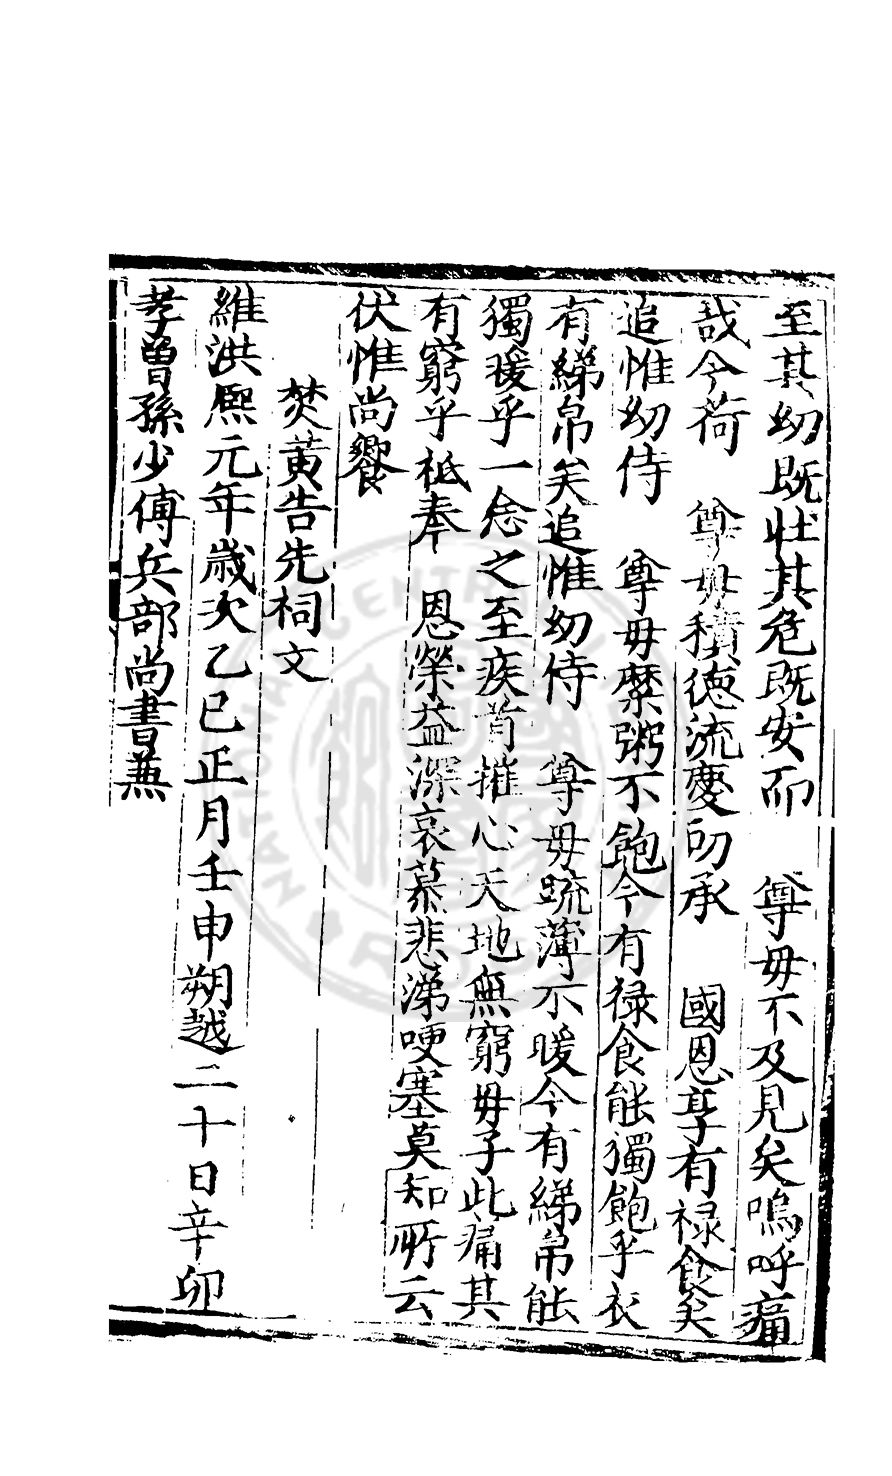 至其幼既壯其危既安而　尊母不及見矣嗚呼痛
哉今荷　尊母積德流慶叨承　國恩享有祿食矣
追惟幼侍　尊母糜粥不飽今有祿食能獨飽乎衣
有綈帛矣追惟幼侍　尊母疏薄不暖今有綈帛能
獨暖乎一念之至疾首摧心天地無窮母子此痛其
有窮乎祗奉　恩榮益深哀慕悲涕哽塞莫知所云
伏惟尚饗
焚黃告先祠文
維洪熙元年歲次乙巳正月壬申朔越二十日辛卯
孝曾孫少傅兵部尚書兼
NATIONAL CENTRAL